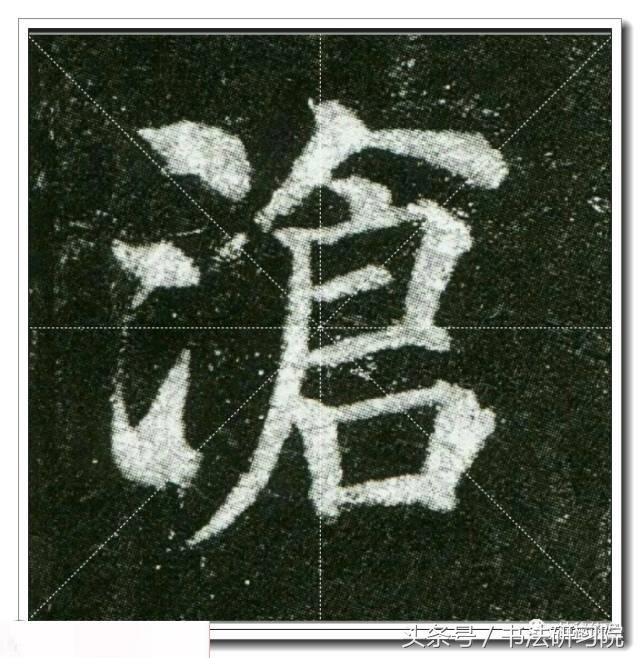 滄
头条号 / 书法研习院